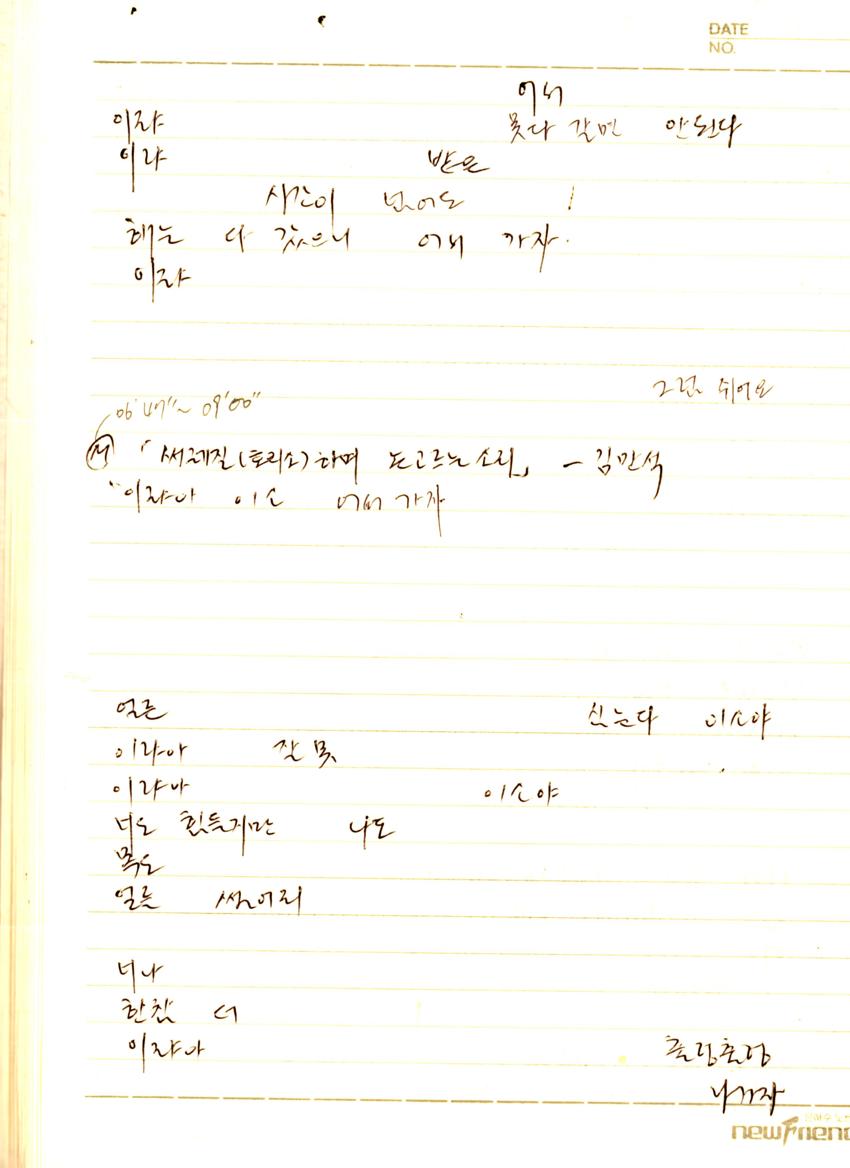 DATE
NO.
어서
이랴 못다 갈면 안된다
이랴 받은
시간이 없어도 !
해는 다 갔으니 어서 가자.
이랴
그런 쉬어요
06'47"~ 09'00"
「써레질(호리소)하며 논고르는소리」 - 김만석
"이랴아 이소 어서 가자
얼른 이소야
이랴아 잘 못
이랴아 이소야
너도 힘들지만 나도
목도
얼른 써어리
너나
한참 더
이랴아 출렁출렁
나가자
newFriend